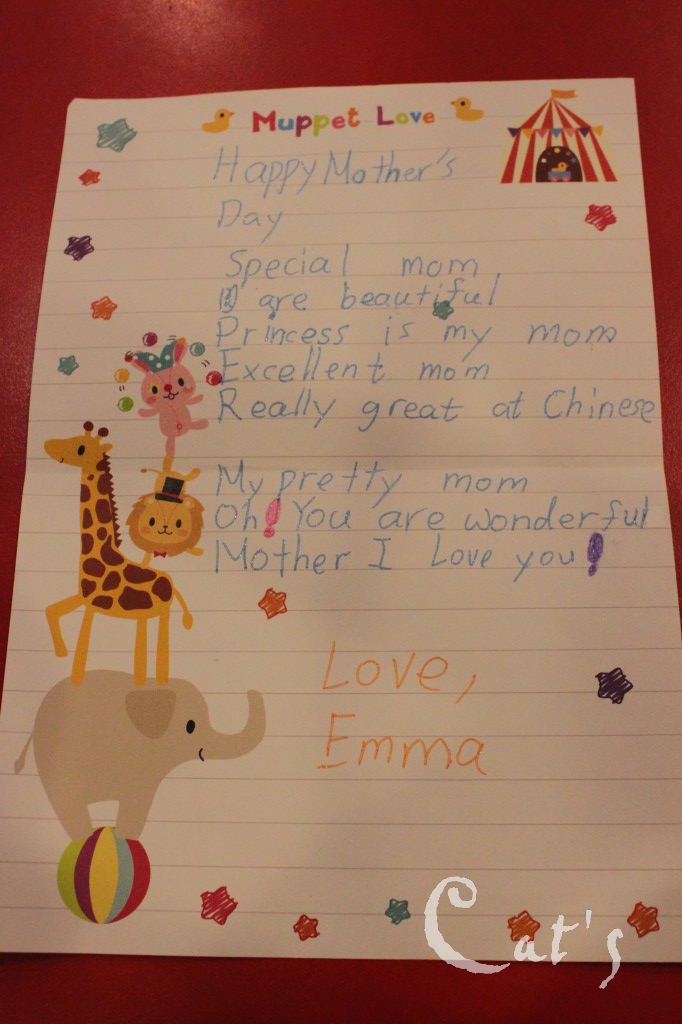 Muppet Love
Happy Mother's
Day
Special mom
are beautiful
Princess is my mom
Excellent mom
Really great at Chinese
My pretty mom
Oh! You are wonderful
Mother I Love you!
Love,
Emma
Cat's